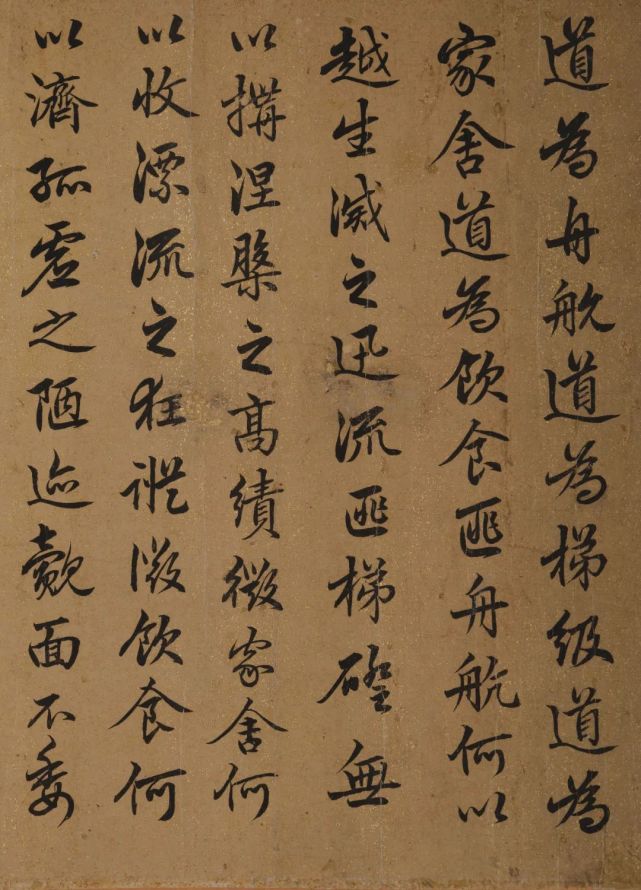 道為舟航道為梯級道為
家舍道為飲食匪舟航何以
越生滅之迅流匪梯磴無
以搆涅槃之高績微家舍何
以收漂流之狂蹤微飲食何
以濟孤虛之陋迹覿面不委